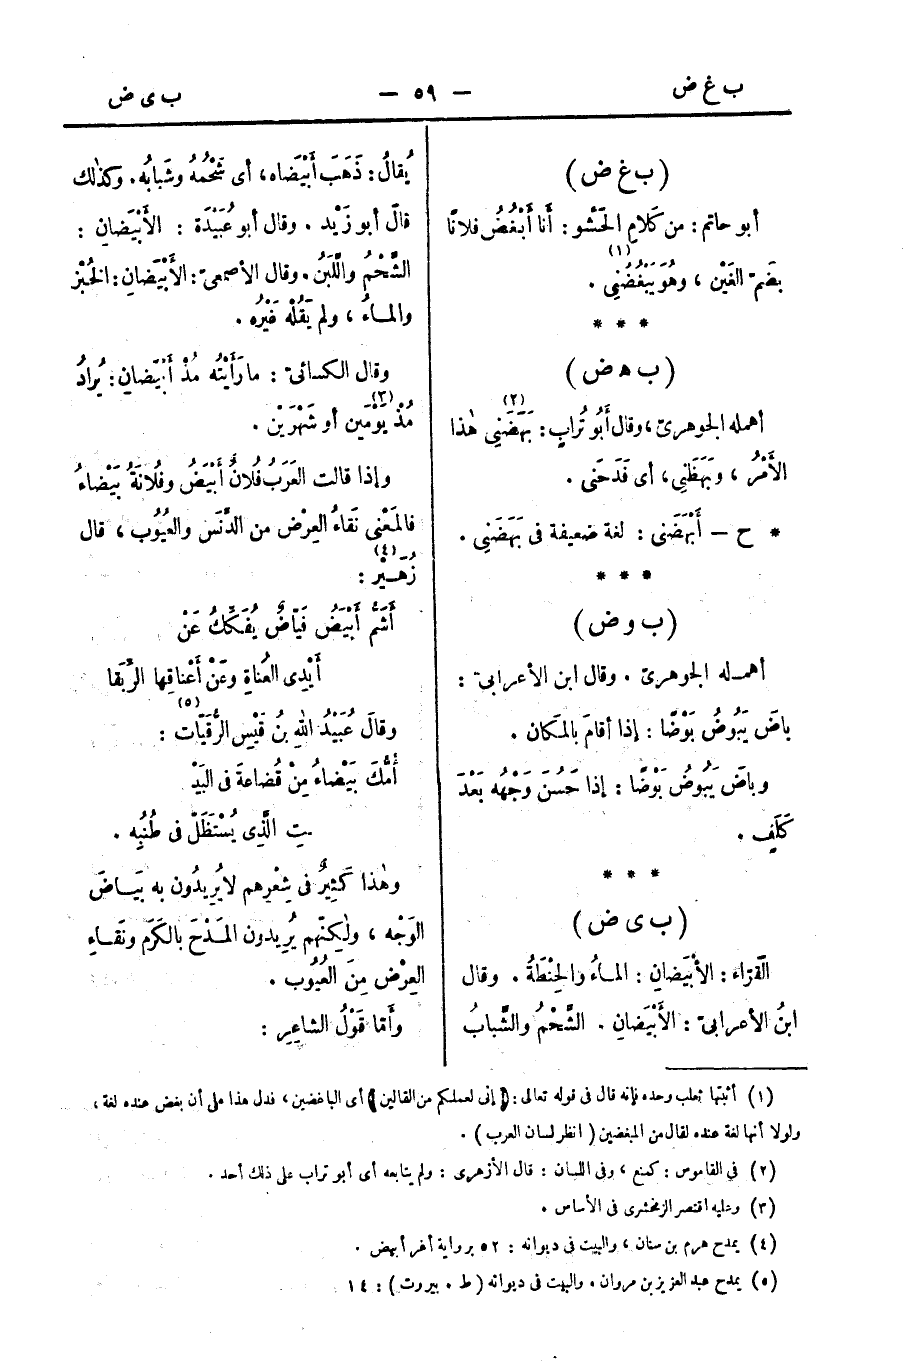 ب غ ض
— ٥٩ —
ب ى ض
(ب غ ض)
أبو حاتم: من كَلامِ الحَشْو: أَنا أَبْغُضُ فلانًا
بضَمّ الغَيْن، وهُوَ يَبْغُضُنِي(١).
* * *
(ب ه ض)
أهمله الجوهرىّ، وقال أَبُو تُرابٍ: بَهَضَنِي(٢) هٰذا
الأَمْرُ، وبَهَظَنِي، أى فَدَحَنى.
* ح — أَبْهَضَنى: لغة ضعيفة فى بَهَضَنِي.
* * *
(ب و ض)
أهمـله الجوهرىّ. وقال ابن الأعرابىّ:
باضَ يَبُوضُ بَوْضًا: إذا أقامَ بالمَكان.
وباضَ يَبُوضُ بَوْضًا: إذا حَسُنَ وَجْهُه بَعْدَ
كَلَفٍ.
* * *
(ب ى ض)
الفَرّاء: الأَبْيَضانِ: المـاءُ والحِنْطَةُ. وقال
ابنُ الأعرابىّ: الأَبْيَضانِ. الشَّحْمُ والشَّبابُ
يُقالُ: ذَهَبَ أَبْيَضاه، أى شَحْمُهُ وشَبابُه. وكذٰلك
قالَ أبو زَيْد. وقال أبو عُبَيْدَة: الأَبْيَضانِ:
الشَّحْمُ واللَّبَنُ. وقال الأصمعىّ: الأَبْيَضانِ: الخُبْز
والمـاءُ، ولم يَقُلْه غَيْرُه.
وقال الكسائىّ: ما رَأَيْتُه مُذْ أَبْيَضانِ: يُرادُ
مُذْ يَوْمَين(٣) أو شَهْرَيْن.
وإذا قالت العَرَبُ فلانٌ أَبْيَضُ وفُلانَةُ بَيْضاءُ
فالمَعْنى نَقاءُ العِرْض من الدَّنَس والعُيُوب، قال
زُهَـيْرٌ(٤):
أَشَمُّ أَبْيَضُ فَيّاضٌ يُفَكِّكُ عَنْ
أَيْدِى العُناةِ وعَنْ أَعْناقِها الرِّبَقا
وقالَ عُبَيْدُ اللهِ بنُ قَيْسِ الرُّقَيّات(٥):
أُمُّكَ بَيْضاءُ مِنْ قُضاعةَ فى البَيْـ
ـتِ الَّذِى يُسْتَظَلّ فى طُنُبِه.
وهٰذا كَثِيرٌ فى شِعْرِهم لا يُرِيدُون به بَيَـاضَ
الوَجْه، ولٰكِنّهم يُرِيدون المَـدْحَ بالكَرَم ونَقـاءِ
العِرْض مِنَ العُيُوب.
وأَمّا قَوْلُ الشاعِرِ:
(١) أثبتها ثعلب وحده فإنه قال فى قوله تعالى: (إنى لعملكم من القالين) أى الباغضين، فدل هذا على أن بغض عنده لغة،
ولولا أنها لغة عنده لقال من المبغضين (انظر لسان العرب).
(٢) فى القاموس: كمنع، وفى اللسان: قال الأزهرى: ولم يتابعه أى أبو تراب على ذلك أحد.
(٣) وعليه اقتصر الزمخشرى فى الأساس.
(٤) يمدح هرم بن سنان، والبيت فى ديوانه: ٥٢ برواية أغر أبيض.
(٥) يمدح عبد العزيز بن مروان. والبيت فى ديوانه (ط. بيروت): ١٤